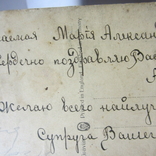 ьаемая Марія Алексан
Сердечно поздравляю Ва
Желаю всего наилу
Супруга Вашего